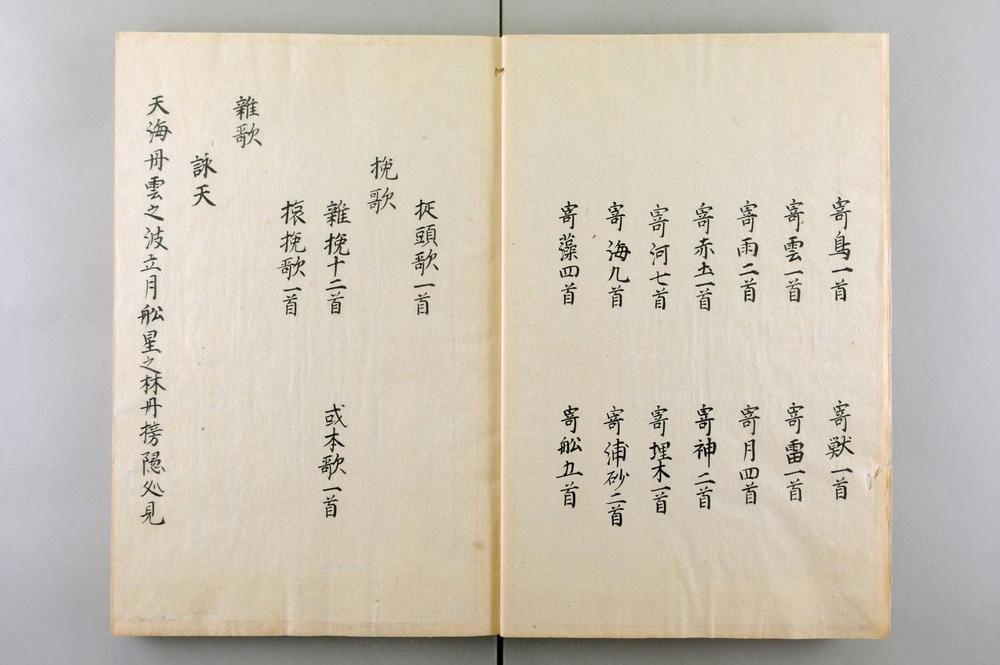 寄鳥一首 寄獣一首
寄雲一首 寄雷一首
寄雨二首 寄月四首
寄赤土一首 寄神二首
寄河七首 寄埋木一首
寄海九首 寄浦砂二首
寄藻四首 寄舩五首
挩頭歌一首
挽歌
雜挽十二首 或本歌一首
𣄃挽歌一首
雜歌
詠天
天海丹雲之波立月舩星之林丹榜隠必見